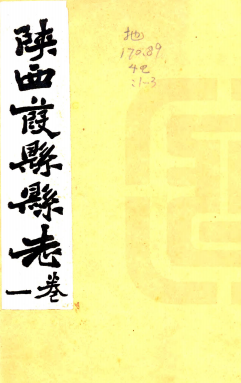 陝西葭縣縣志
卷一
地
170.89
:1-3